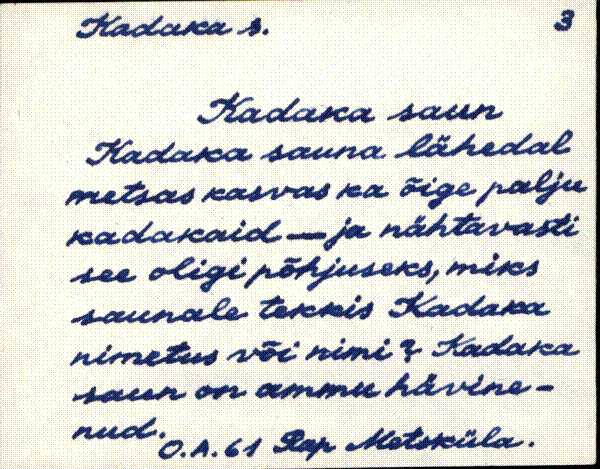 Kadaka s. 3
Kadaka saun
Kadaka sauna lähedal
metsas kasvas ka õige palju
kadakaid — ja nähtavasti
see oligi põhjuseks, miks
saunale tekkis Kadaka
nimetus või nimi? Kadaka
saun on ammu hävine-
nud.
O.A. 61 Rap Metsküla.